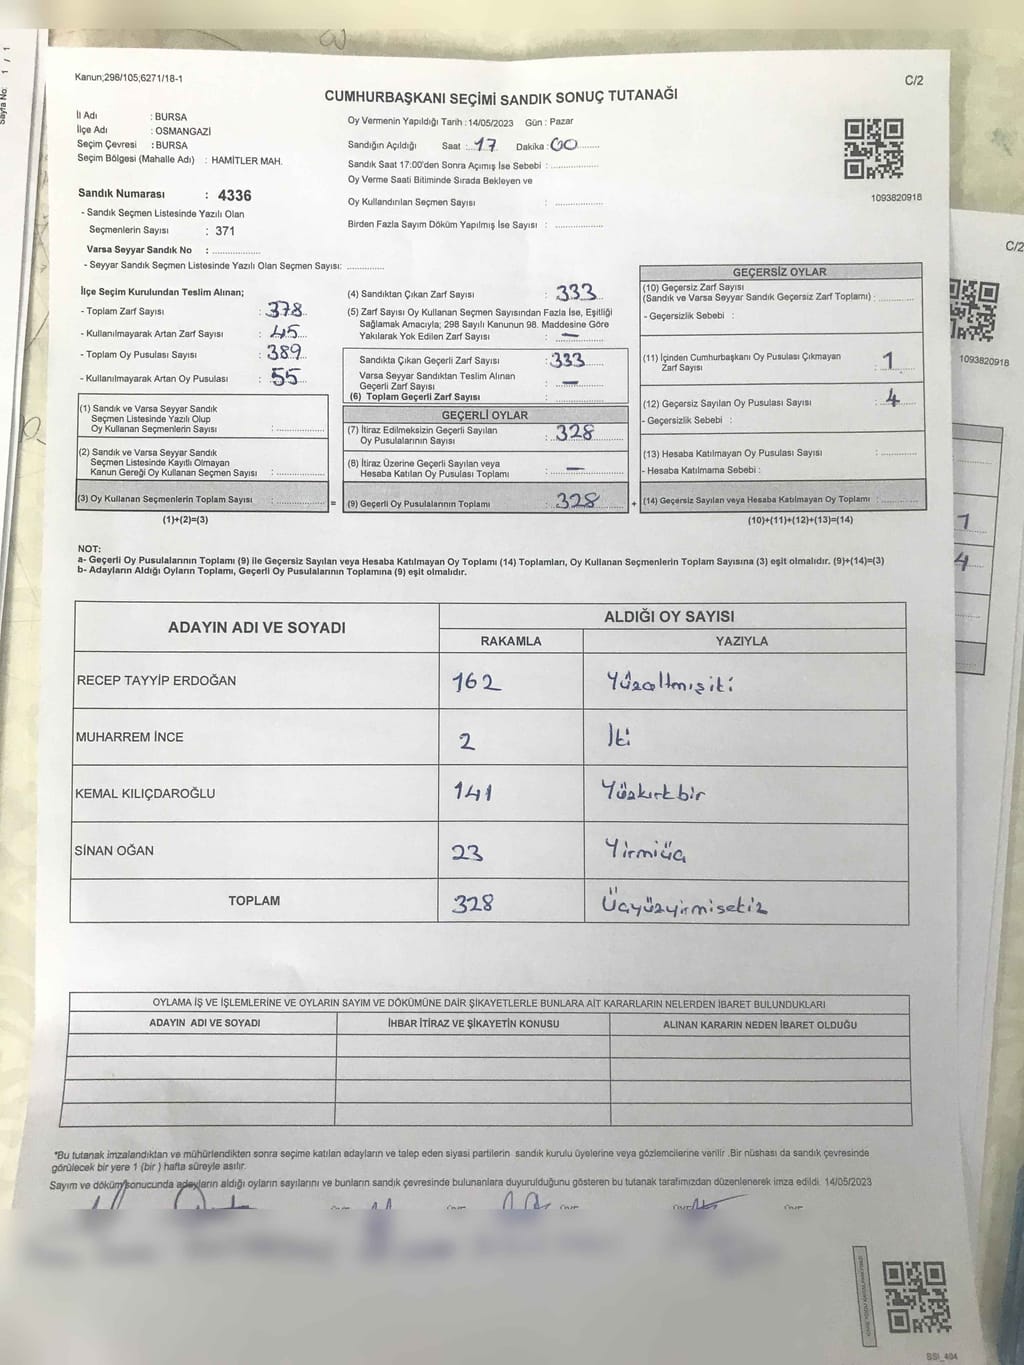 Sayfa No: 1 / 1
Kanun;298/105;6271/18-1
C/2
CUMHURBAŞKANI SEÇİMİ SANDIK SONUÇ TUTANAĞI
İl Adı : BURSA
İlçe Adı : OSMANGAZİ
Seçim Çevresi : BURSA
Seçim Bölgesi (Mahalle Adı) : HAMİTLER MAH.
Oy Vermenin Yapıldığı Tarih : 14/05/2023 Gün : Pazar
Sandığın Açıldığı Saat : 17 Dakika : 00
Sandık Saat 17:00'den Sonra Açımış İse Sebebi :
Oy Verme Saati Bitiminde Sırada Bekleyen ve
Oy Kullandırılan Seçmen Sayısı :
Birden Fazla Sayım Döküm Yapılmış İse Sayısı :
1093820918
Sandık Numarası : 4336
- Sandık Seçmen Listesinde Yazılı Olan
Seçmenlerin Sayısı : 371
Varsa Seyyar Sandık No :
- Seyyar Sandık Seçmen Listesinde Yazılı Olan Seçmen Sayısı:
İlçe Seçim Kurulundan Teslim Alınan;
- Toplam Zarf Sayısı : 378
- Kullanılmayarak Artan Zarf Sayısı : 45
- Toplam Oy Pusulası Sayısı : 389
- Kullanılmayarak Artan Oy Pusulası : 55
(1) Sandık ve Varsa Seyyar Sandık
Seçmen Listesinde Yazılı Olup
Oy Kullanan Seçmenlerin Sayısı :
(2) Sandık ve Varsa Seyyar Sandık
Seçmen Listesinde Kayıtlı Olmayan
Kanun Gereği Oy Kullanan Seçmen Sayısı :
(3) Oy Kullanan Seçmenlerin Toplam Sayısı :
(1)+(2)=(3)
(4) Sandıktan Çıkan Zarf Sayısı : 333
(5) Zarf Sayısı Oy Kullanan Seçmen Sayısından Fazla İse, Eşitliği
Sağlamak Amacıyla; 298 Sayılı Kanunun 98. Maddesine Göre
Yakılarak Yok Edilen Zarf Sayısı : —
Sandıkta Çıkan Geçerli Zarf Sayısı : 333
Varsa Seyyar Sandıktan Teslim Alınan
Geçerli Zarf Sayısı : —
(6) Toplam Geçerli Zarf Sayısı :
GEÇERLİ OYLAR
(7) İtiraz Edilmeksizin Geçerli Sayılan
Oy Pusulalarının Sayısı : 328
(8) İtiraz Üzerine Geçerli Sayılan veya
Hesaba Katılan Oy Pusulası Toplamı : —
= (9) Geçerli Oy Pusulalarının Toplamı : 328 +
GEÇERSİZ OYLAR
(10) Geçersiz Zarf Sayısı
(Sandık ve Varsa Seyyar Sandık Geçersiz Zarf Toplamı) :
- Geçersizlik Sebebi :
(11) İçinden Cumhurbaşkanı Oy Pusulası Çıkmayan
Zarf Sayısı : 1
(12) Geçersiz Sayılan Oy Pusulası Sayısı : 4
- Geçersizlik Sebebi :
(13) Hesaba Katılmayan Oy Pusulası Sayısı :
- Hesaba Katılmama Sebebi :
(14) Geçersiz Sayılan veya Hesaba Katılmayan Oy Toplamı :
(10)+(11)+(12)+(13)=(14)
NOT:
a- Geçerli Oy Pusulalarının Toplamı (9) ile Geçersiz Sayılan veya Hesaba Katılmayan Oy Toplamı (14) Toplamları, Oy Kullanan Seçmenlerin Toplam Sayısına (3) eşit olmalıdır. (9)+(14)=(3)
b- Adayların Aldığı Oyların Toplamı, Geçerli Oy Pusulalarının Toplamına (9) eşit olmalıdır.
ADAYIN ADI VE SOYADI ALDIĞI OY SAYISI
RAKAMLA YAZIYLA
RECEP TAYYİP ERDOĞAN 162 Yüzaltmışiki
MUHARREM İNCE 2 İki
KEMAL KILIÇDAROĞLU 141 Yüzkırkbir
SİNAN OĞAN 23 Yirmiüç
TOPLAM 328 Üçyüzyirmisekiz
OYLAMA İŞ VE İŞLEMLERİNE VE OYLARIN SAYIM VE DÖKÜMÜNE DAİR ŞİKAYETLERLE BUNLARA AİT KARARLARIN NELERDEN İBARET BULUNDUKLARI
ADAYIN ADI VE SOYADI İHBAR İTİRAZ VE ŞİKAYETİN KONUSU ALINAN KARARIN NEDEN İBARET OLDUĞU
*Bu tutanak imzalandıktan ve mühürlendikten sonra seçime katılan adayların ve talep eden siyasi partilerin sandık kurulu üyelerine veya gözlemcilerine verilir .Bir nüshası da sandık çevresinde
görülecek bir yere 1 (bir ) hafta süreyle asılır.
Sayım ve döküm sonucunda adayların aldığı oyların sayılarını ve bunların sandık çevresinde bulunanlara duyurulduğunu gösteren bu tutanak tarafımızdan düzenlenerek imza edildi. 14/05/2023
SSI_404
C/2
1093820918
1
4